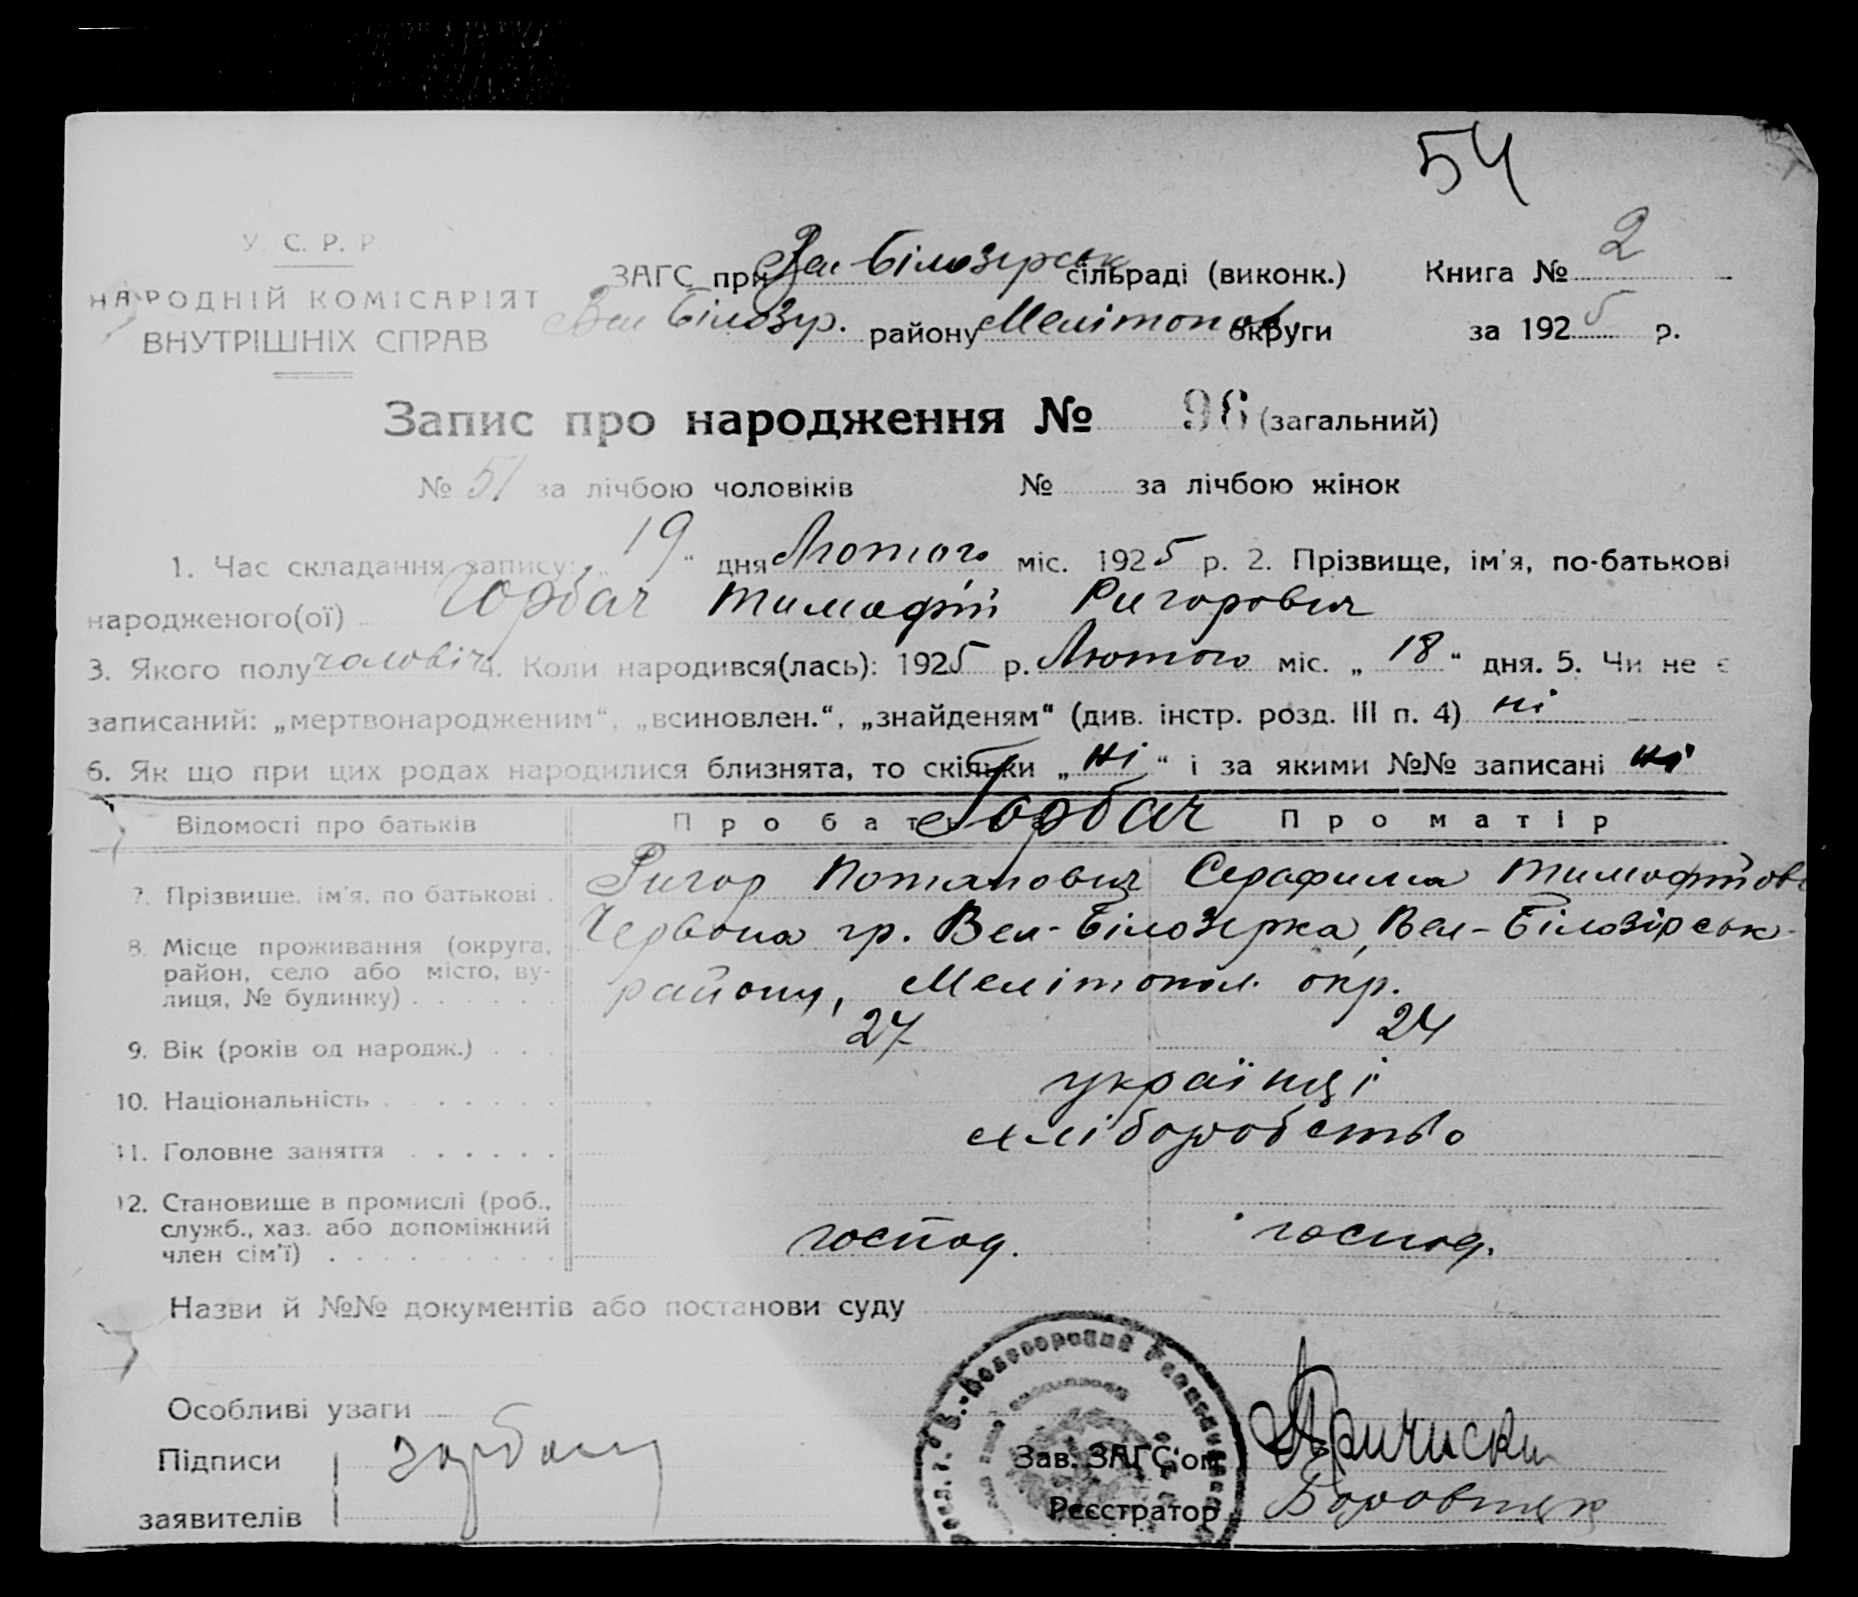 54
У. С. Р. Р.
НАРОДНІЙ КОМІСАРІЯТ
ВНУТРІШНІХ СПРАВ
ЗАГС при Вел-Білозерськ сільраді (виконк.) Книга № 2
Вел Білозер. району Мелітопол. округи за 1925 р.
Запис про народження № 96 (загальний)
№ 51 за лічбою чоловіків № за лічбою жінок
1. Час складання запису: „ 19 “ дня Лютого міс. 1925 р. 2. Прізвище, ім'я, по-батькові
народженого(ої) Горбач Тимофій Ригорович
3. Якого полу чоловіч 4. Коли народився(лась): 1925 р. Лютого міс. „ 18 “ дня. 5. Чи не є
записаний: „мертвонародженим“, „всиновлен.“, „знайденям“ (див. інстр. розд. III п. 4) ні
6. Як що при цих родах народилися близнята, то скільки „ ні “ і за якими №№ записані ні
Відомості про батьків Про батька Про матір
Горбач
7. Прізвище, ім'я, по батькові . Ригор Потапович Серафима Тимофійов
8. Місце проживання (округа, район, село або місто, вулиця, № будинку) . . . . . . Червона гр. Вел-Білозерка, Вел-Білозірськ-
району, Мелітопол. окр.
9. Вік (років од народж.) . . . 27 24
10. Національність . . . . . . . українці
11. Головне заняття . . . . . . хліборобство
12. Становище в промислі (роб., служб., хаз. або допоміжний член сім'ї) . . . . . . . . господ. господ.
Назви й №№ документів або постанови суду
Особливі уваги
Підписи
заявителів
Горбач
Зав. ЗАГС'ом
Реєстратор